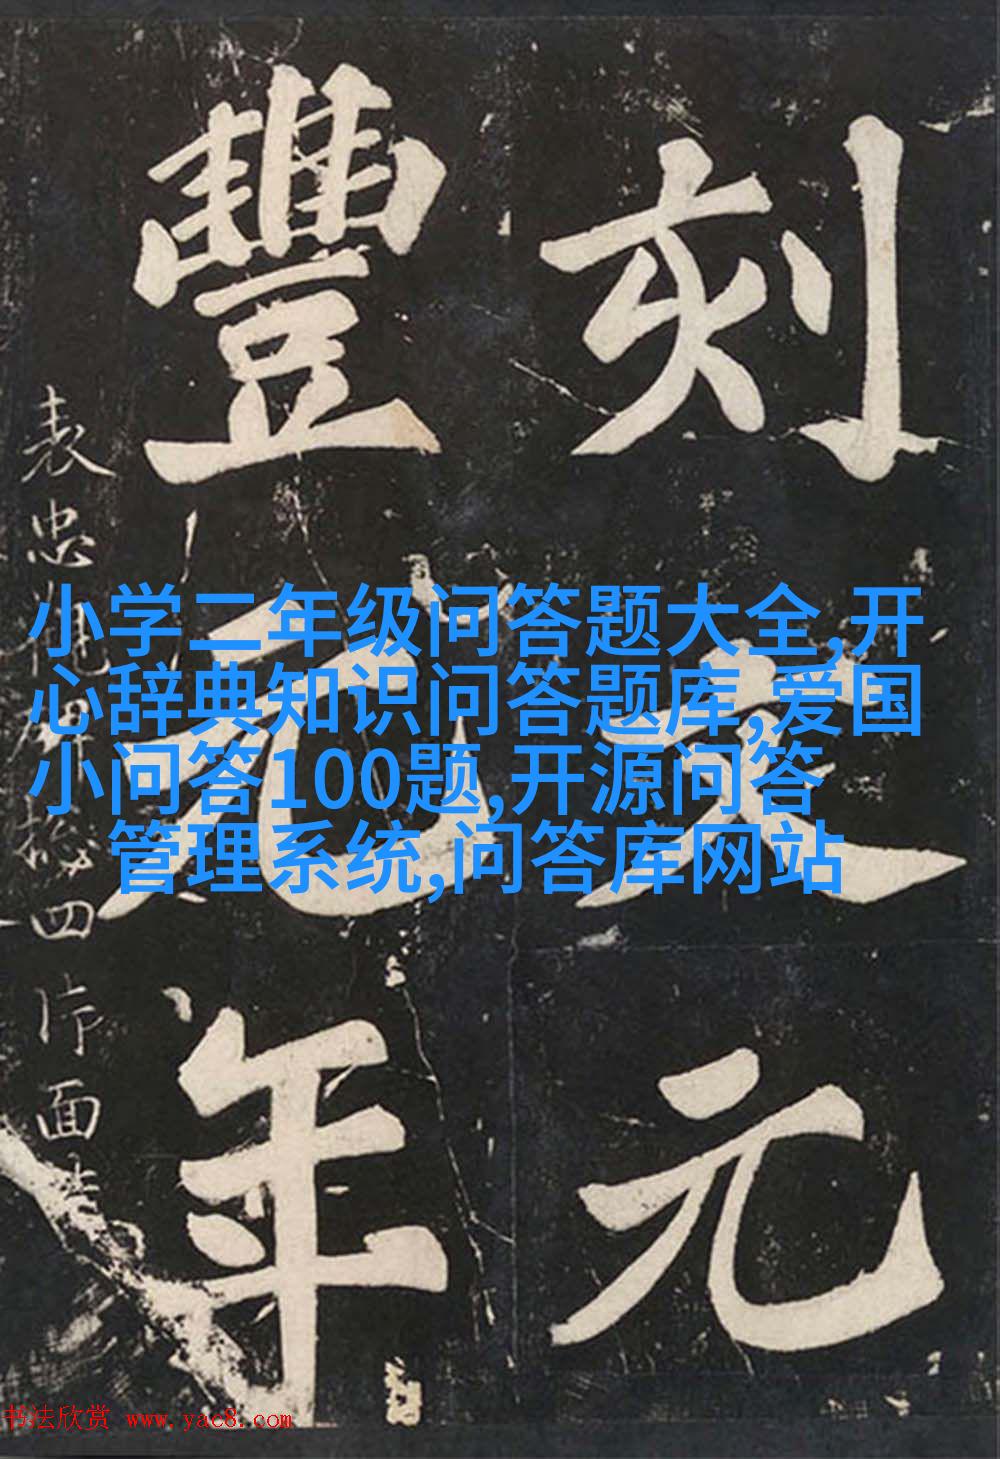 刻文元
豐元年
表忠 四片面
小学二年级问答题大全,开
心辞典知识问答题库,爱国
小问答100题,开源问答
管理系统,问答库网站
书法欣赏 www.yac8.com